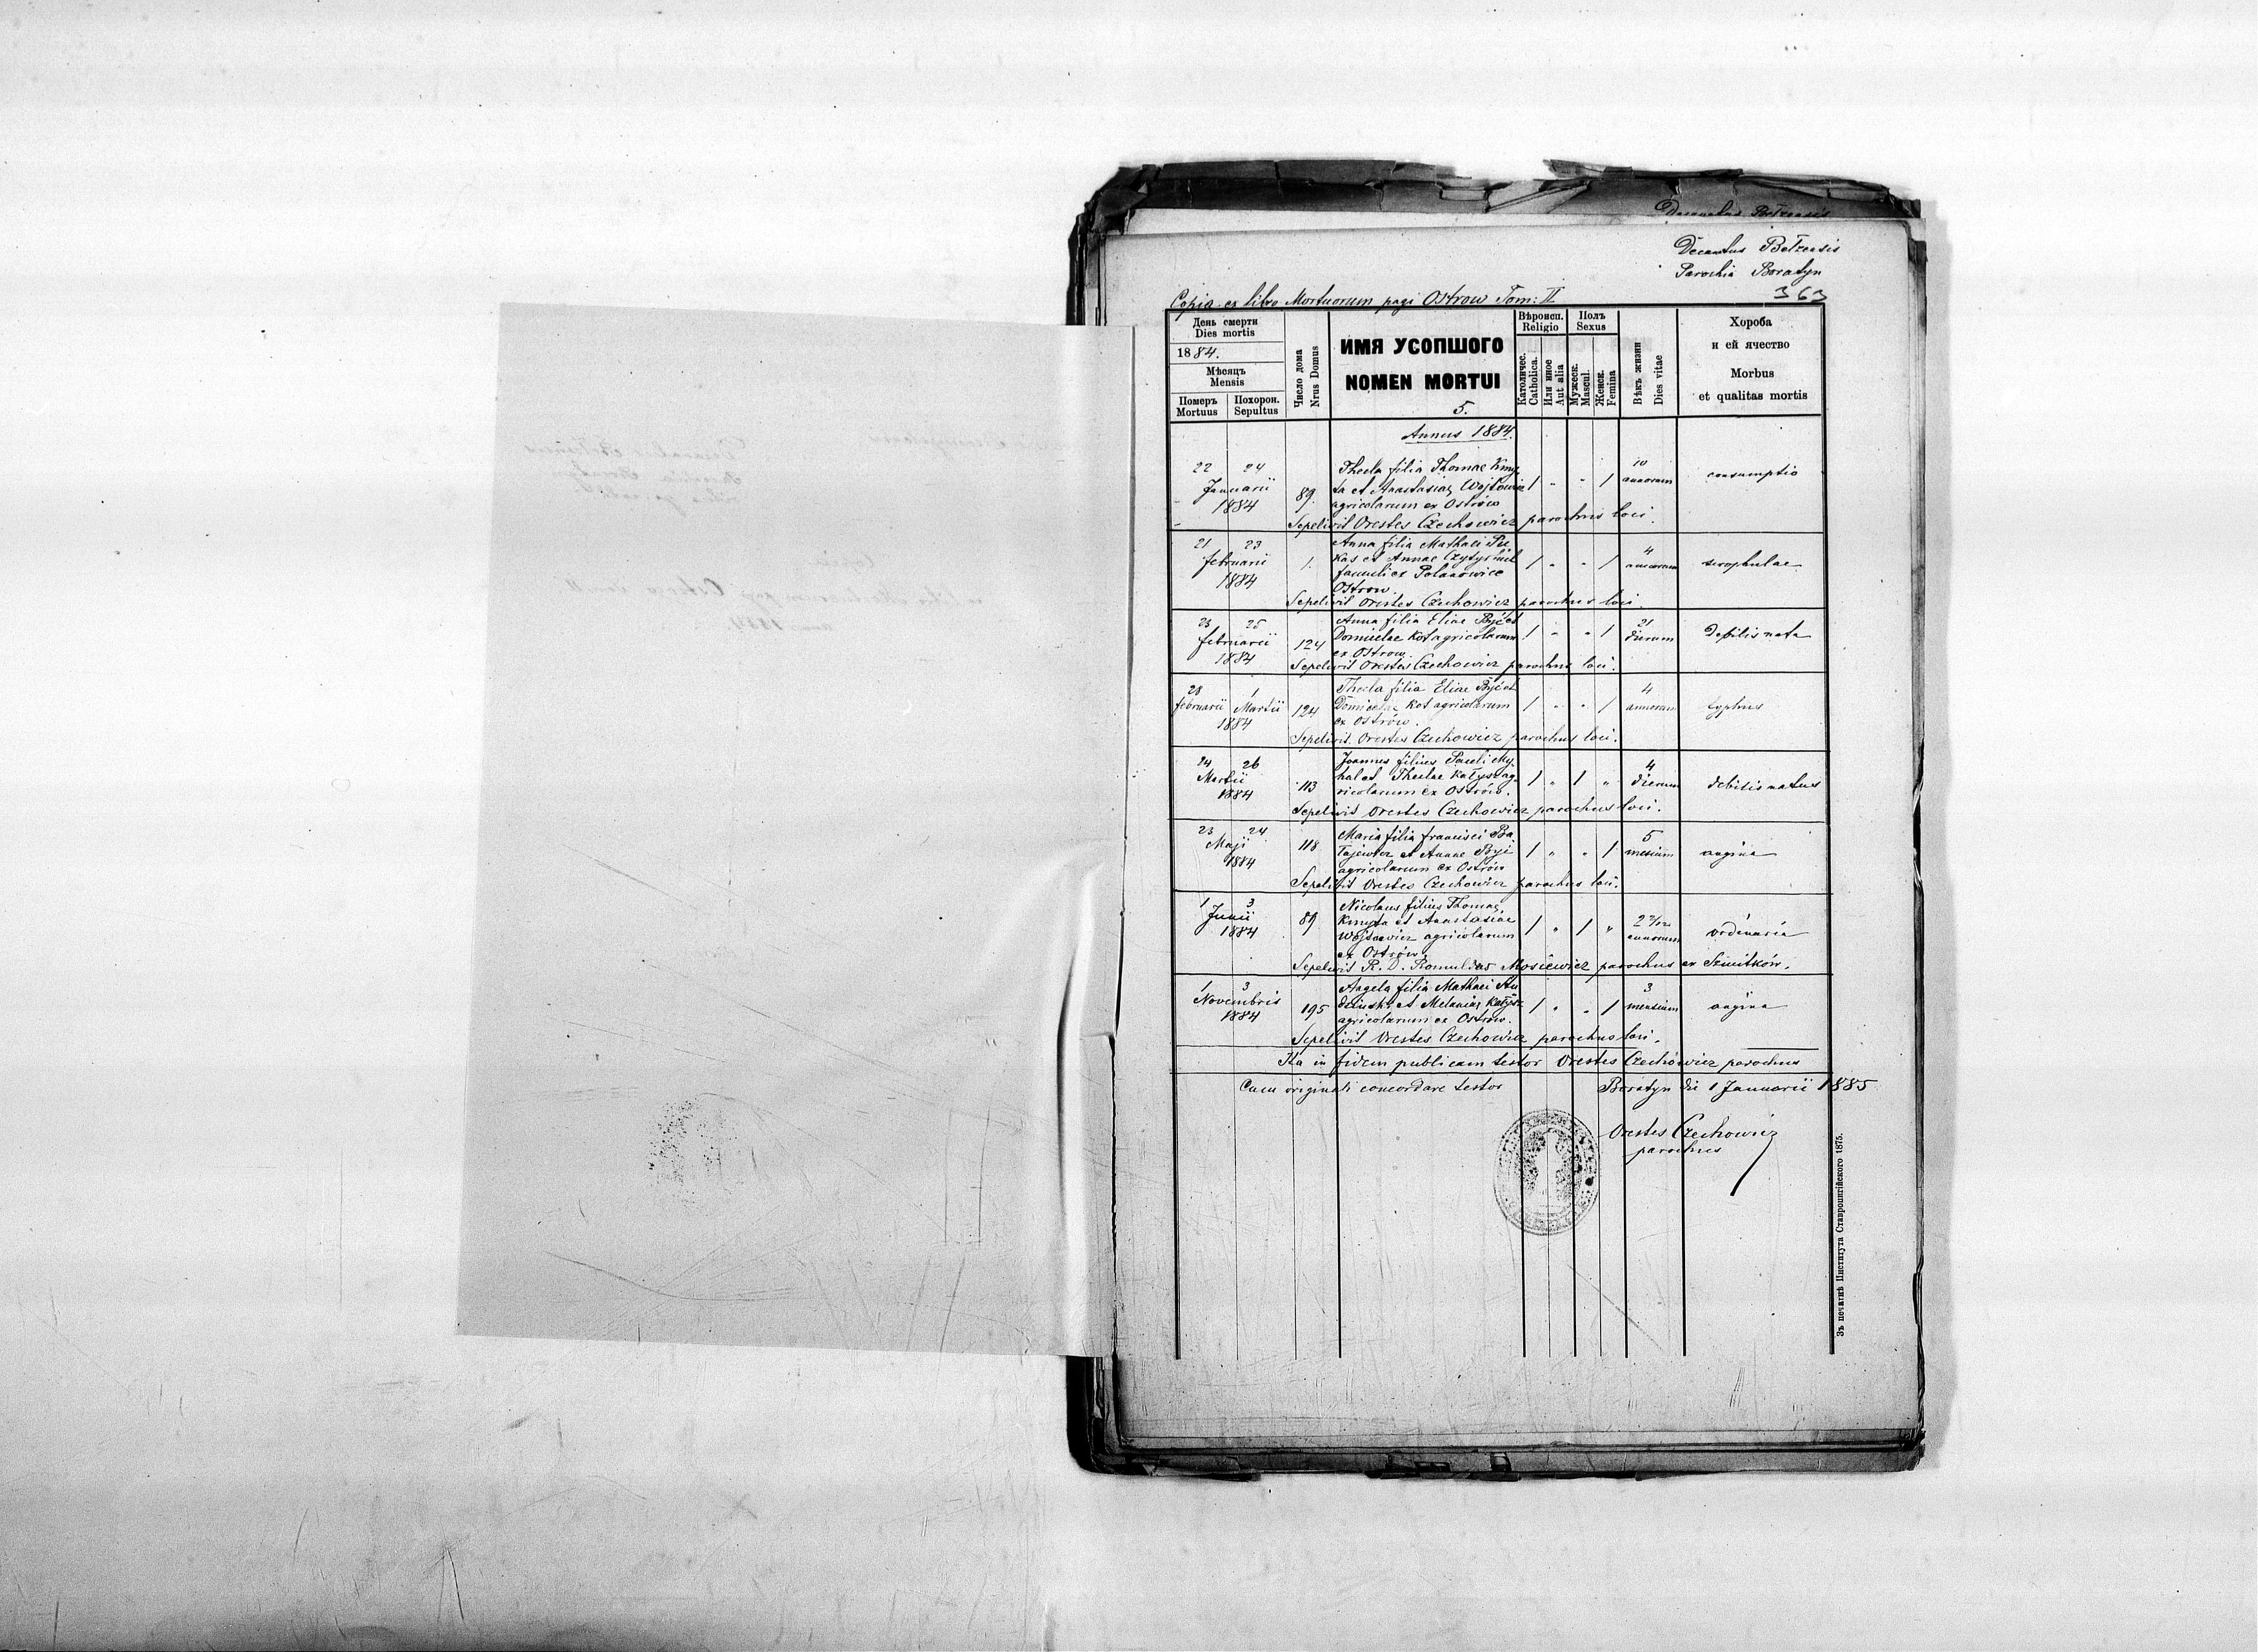 Decanatus Bełzensis
Decanatus Bełzensis
Parochia Boratyn
363
Copia ex libro Mortuorum pagi Ostrow Tom: II
День смерти
Dies mortis
1884.
Мѣсяцъ
Mensis
Померъ
Mortuus
Похорон.
Sepultus
Число дома
Nrus Domus
ИМЯ УСОПШОГО
NOMEN MORTUI
5.
Вѣроисп.
Religio
Католичес.
Catholica.
Или иное
Aut alia
Полъ
Sexus
Мужеск.
Mascul.
Женск.
Femina
Вѣкъ жизни
Dies vitae
Хороба
и ей ячество
Morbus
et qualitas mortis
Annus 1884.
22 24
Januarii
1884
89.
Thecla filia Thomae Kmy-
ta et Anastasiae Wojtowicz
agricolarum ex Ostrów
1 " " 1
10
annorum
consumptio
Sepelivit Orestes Czechowicz parochus loci.
21 23
februarii
1884
1.
Anna filia Mathaei
kas et Annae
famuli ex Polanowice
Ostrow.
1 " " 1
4
annorum
scrophulae
Sepelivit Orestes Czechowicz parochus loci.
23 25
februarii
1884
124
Anna filia Eliae Być et
Domicelae Kot agricolarum
ex Ostrow.
1 " " 1
21
dierum
debilis nata
Sepelivit Orestes Czechowicz parochus loci.
28 1
februarii Martii
1884
124
Thecla filia Eliae Być et
Domicelae Kot agricolarum
ex Ostrów.
1 " " 1
4
annorum
typhus
Sepelivit Orestes Czechowicz parochus loci.
24 26
Martii
1884
113
Joannes filius Pauli My-
hal et Theclae Kałysz ag-
ricolarum ex Ostrów.
1 " 1 "
4
dierum
debilis natus
Sepelivit Orestes Czechowicz parochus loci.
23 24
Maji
1884
118
Maria filia francisci Ba-
łajewicz et Annae Być
agricolarum ex Ostrów
1 " " 1
5
mensium
angina
Sepelivit Orestes Czechowicz parochus loci.
1 3
Junii
1884
89
Nicolaus filius Thomae
Kmyta et Anastasiae
Wojtowicz agricolarum
ex Ostrów
1 " 1 "
2
annorum
ordinaria
Sepelivit R. D. Romuldus Mosiewicz parochus ex Szmitków.
1 3
Novembris
1884
195
Angela filia Mathaei
et Melaniae Kałysz
agricolarum ex Ostrów.
1 " " 1
3
mensium
angina
Sepelivit Orestes Czechowicz parochus loci.
Ita in fidem publicam testor Orestes Czechowicz parochus
Cum originali concordare testor
Boratyn die 1 Januarii 1885
Orestes Czechowicz
parochus
Зъ печатнѣ Института Ставропигійского 1875.